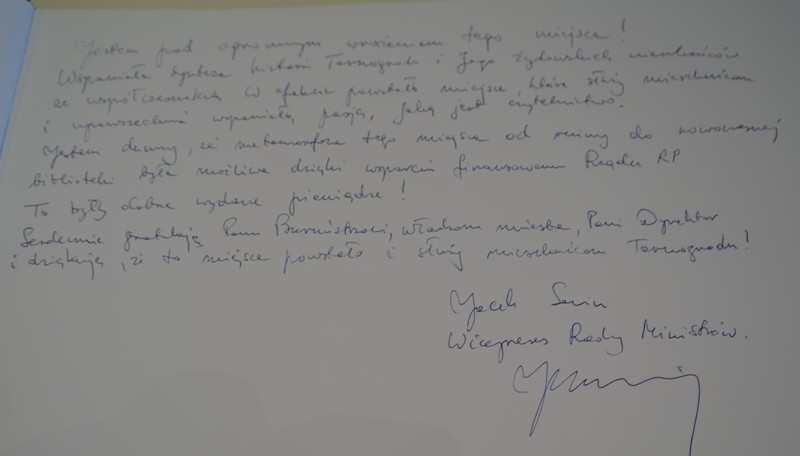 Jestem pod ogromnym wrażeniem tego miejsca!
Wspaniała synteza historii Tarnogrodu i Jego żydowskich mieszkańców
ze współczesnością. W efekcie powstało miejsce, które służy mieszkańcom
i upowszechnia wspaniałą pasją, jaką jest czytelnictwo.
Jestem dumny, że metamorfoza tego miejsca od ruiny do nowoczesnej
biblioteki była możliwa dzięki wsparciu finansowemu Rządu RP
To były dobrze wydane pieniądze!
Serdecznie gratuluję Panu Burmistrzowi, władzom miasta, Pani Dyrektor
i dziękuję, że to miejsce powstało i służy mieszkańcom Tarnogrodu!
Jacek Sasin
Wicepremier Rady Ministrów.